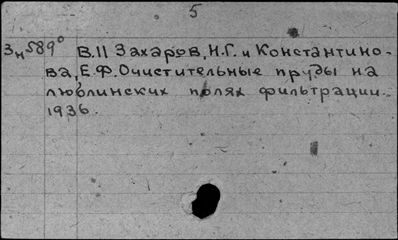 5
Зн589° В.11 Захаров, Н.Г. и Константино-
ва, Е.Ф. Очистительные пруды на
люблинских полях фильтрации.
1936.